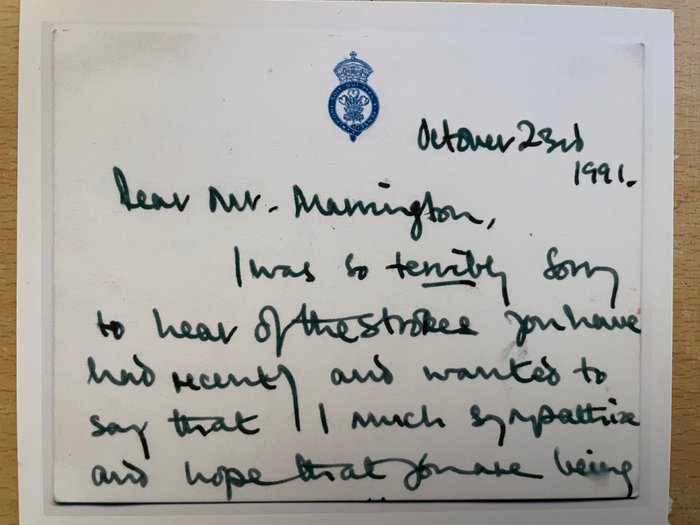 October 23rd
1991.
Dear Mr. Mannington,
I was so terribly sorry
to hear of the strokes you have
had recently and wanted to
say that I much sympathize
and hope that you are being